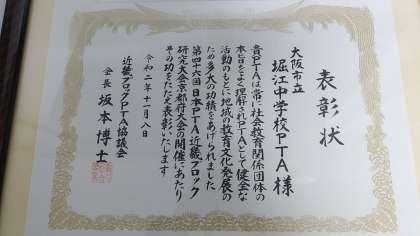 表彰状
大阪市立
堀江中学校PTA様
貴PTAは常に社会教育関係団体の
本旨をよく理解されPTAとして健全な
活動のもとに地域の教育文化発展の
ため多大の功績をあげられました
第四十六回日本PTA近畿ブロック
研究大会京都府大会の開催にあたり
その功をたたえ表彰いたします
令和二年十一月八日
近畿ブロックPTA協議会
会長 坂本博士